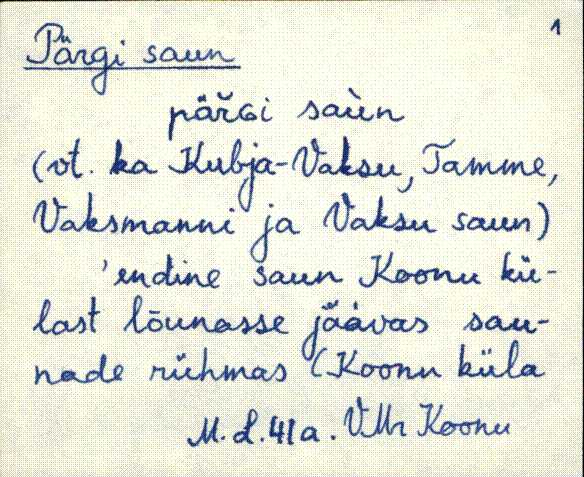 1
Pärgi saun
pär̆Gi saùn
(vt. ka Kubja-Vaksu, Tamme,
Vaksmanni ja Vaksu saun)
'endine saun Koonu kü-
last lõunasse jäävas sau-
nade rühmas (Koonu küla
M. L. 41a. VMr Koonu